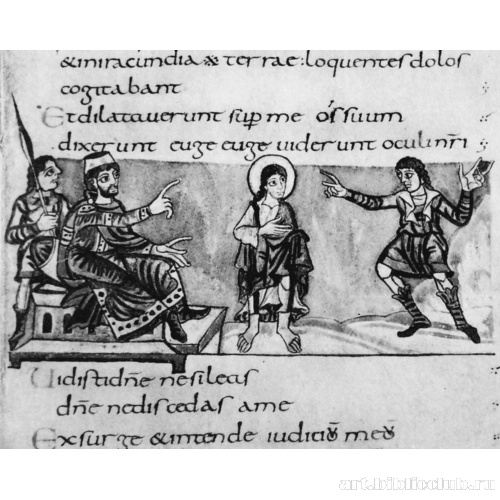 &iniracundia terrae: loquentes dolos
cogitabant
Et dilataverunt sup me os suum
dixerunt euge euge viderunt oculi nri
Vidisti dñe ne sileas
dñe ne discedas a me
Exsurge &intende iudiciū meū
art.biblioclub.ru